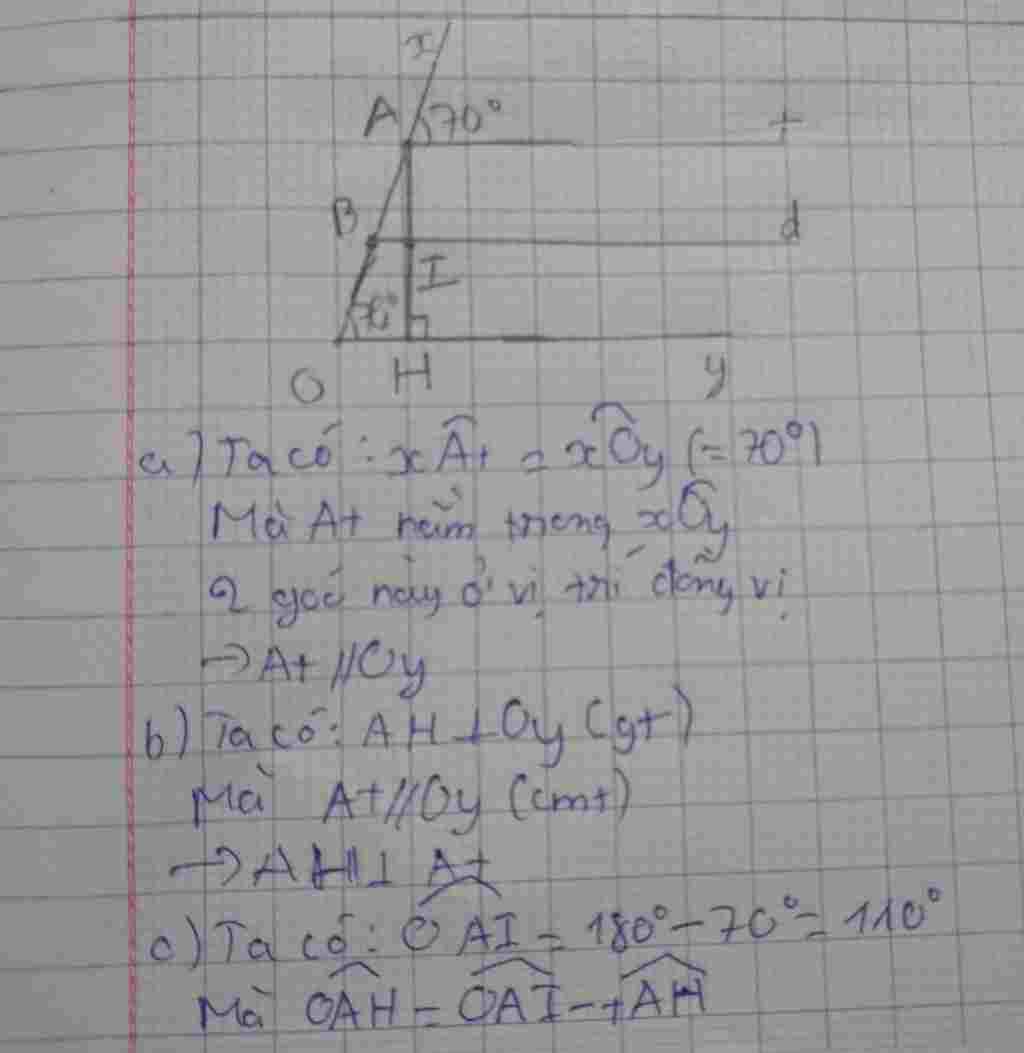 x
A 70°
t
B
d
I
70°
O H y
a) Ta có: xÂt = xÔy (= 70°)
Mà At nằm trong xÔy
2 góc này ở vị trí đồng vị
→ At // Oy
b) Ta có: AH ⊥ Oy (gt)
Mà At // Oy (cmt)
→ AH ⊥ At
c) Ta có: OAI = 180° - 70° = 110°
Mà OAH = OAI - tAH